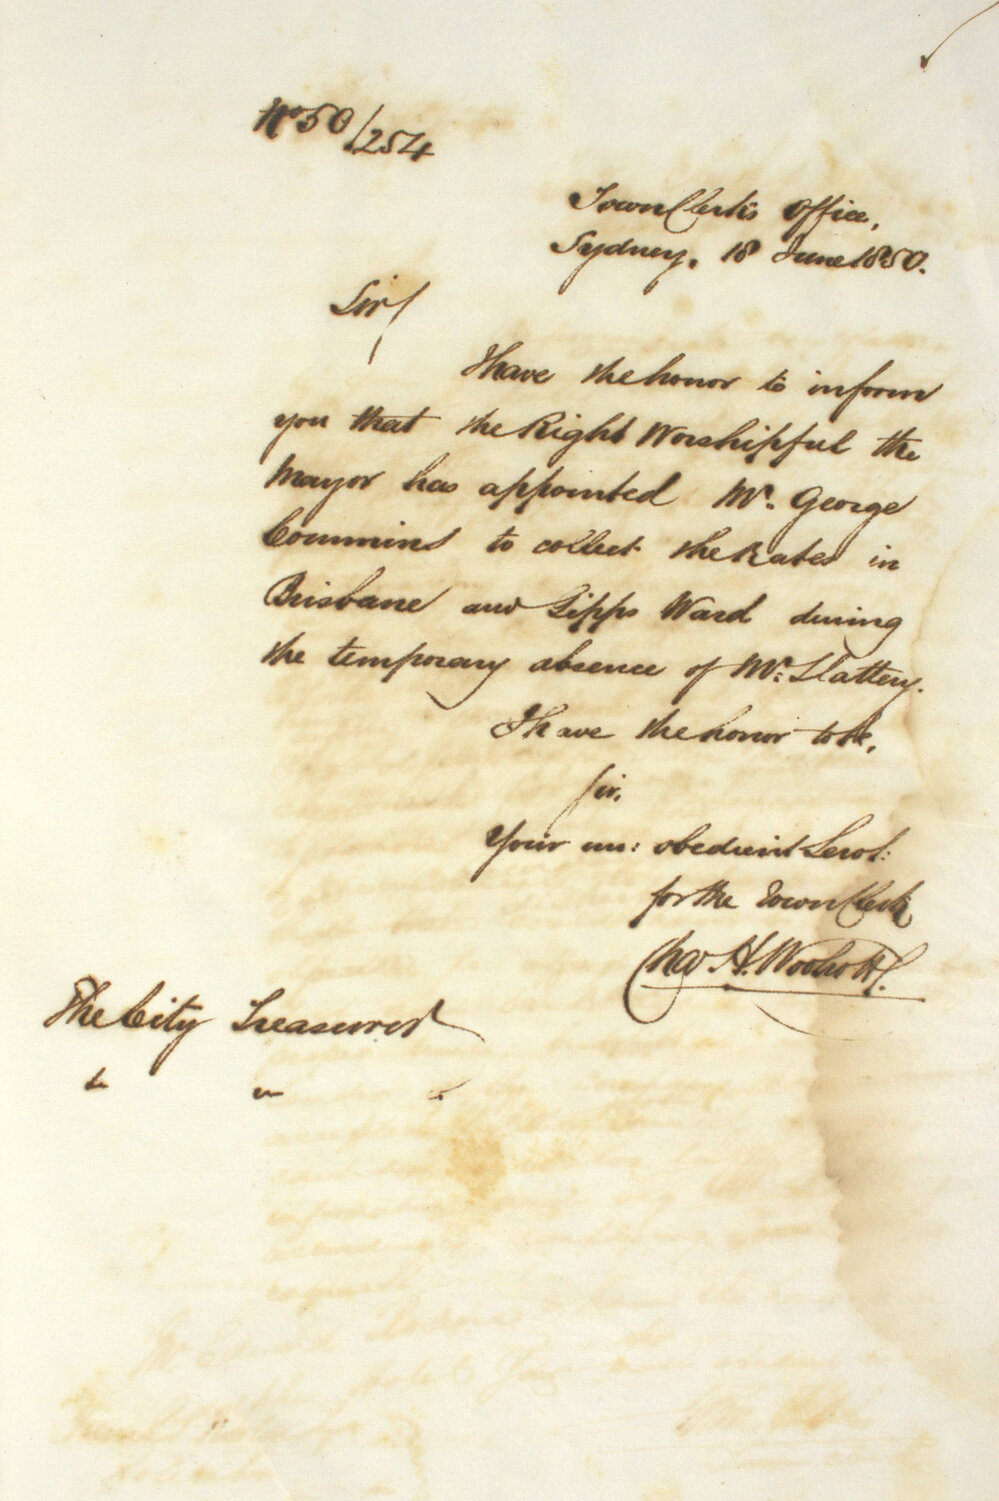 No 50/254
Town Clerk's Office,
Sydney, 18 June 1850.
Sir/
I have the honor to inform
you that the Right Worshipful the
Mayor has appointed Mr. George
Commins to collect the Rates in
Brisbane and Gipps Ward during
the temporary absence of Mr. Slattery.
I have the honor to be,
Sir,
Your mo: obedient Servt:
for the Town Clerk
Chas. H. Woolcott.
The City Treasurer